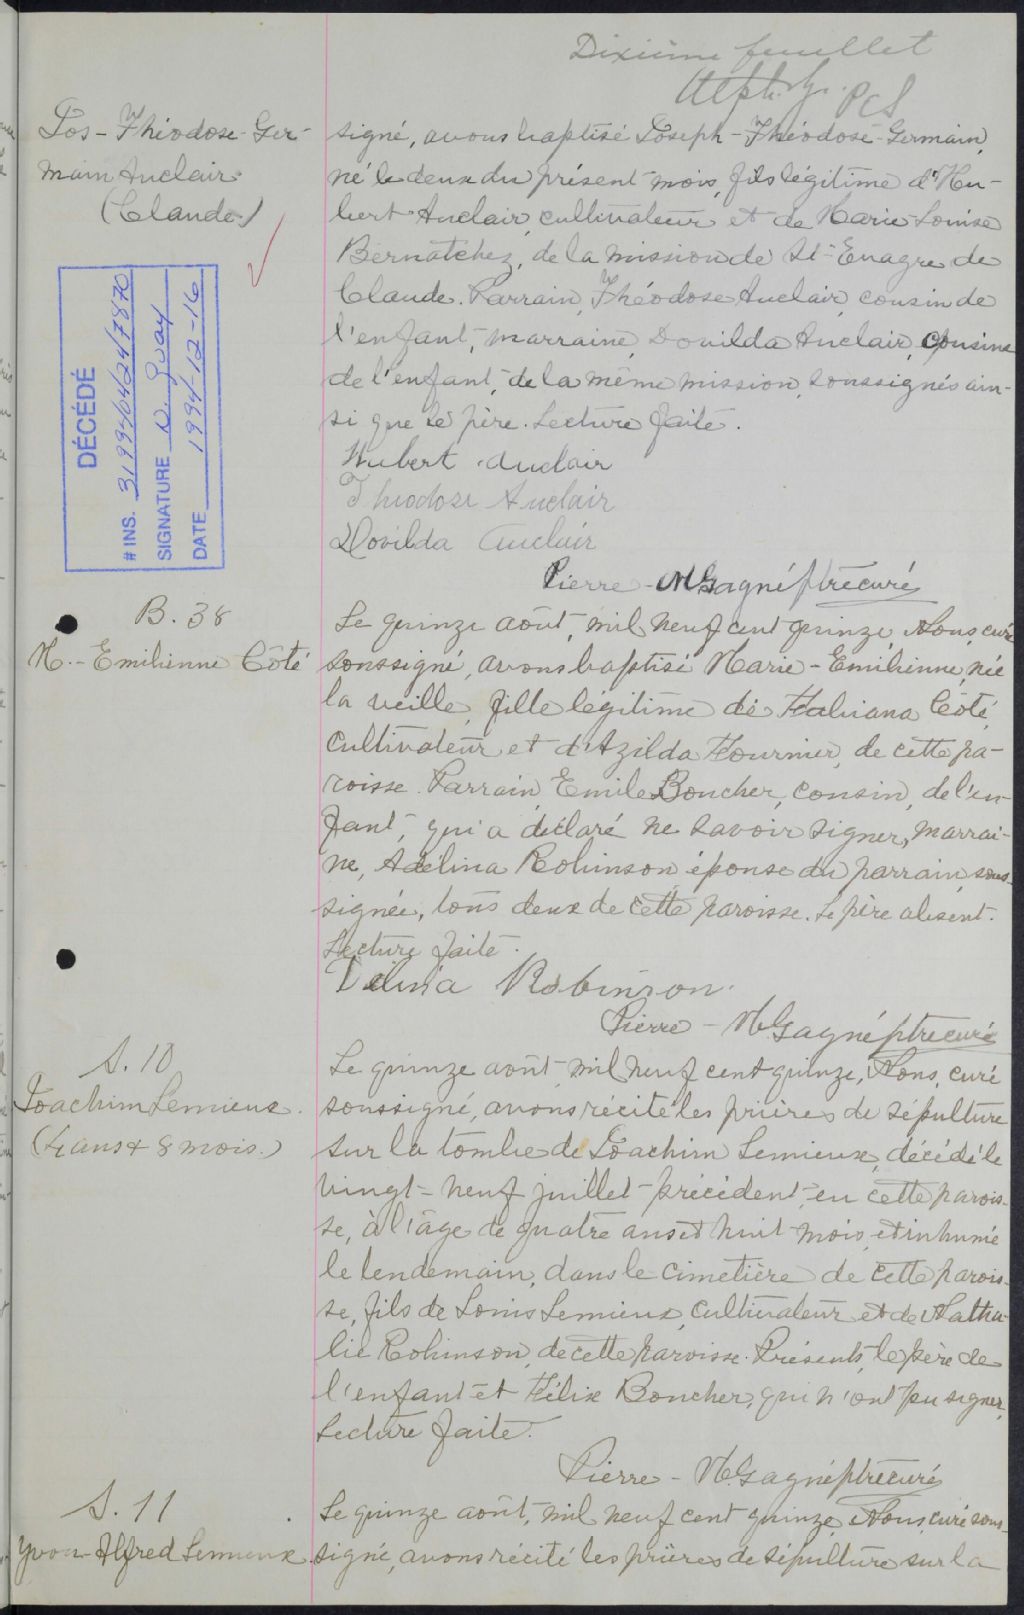 Dixième feuillet
Alph. G. PCS
Jos-Théodose-Ger-
main Auclair
(Claude)
DÉCÉDÉ
# INS. 3199404247870
SIGNATURE N. Guay
DATE 1994-12-16
signé, avons baptisé Joseph-Théodose-Germain,
né le deux du présent mois, fils légitime d'Hu-
bert Auclair, cultivateur et de Marie-Louise
Bernatchez, de la mission de St-Evagre de
Claude. Parrain, Théodose Auclair, cousin de
l'enfant, marraine, Dovilda Auclair, cousine
de l'enfant, de la même mission, soussignés ain-
si que le père. Lecture faite.
Hubert Auclair
Théodose Auclair
Dovilda Auclair
Pierre-M Gagné ptre curé
B. 38
M.-Emilienne Côté
Le quinze août, mil neuf cent quinze, Nous, curé
soussigné, avons baptisé Marie-Emilienne, née
la veille, fille légitime de Fabiana Côté,
cultivateur et d'Azilda Fournier, de cette pa-
roisse. Parrain, Emile Boucher, cousin, de l'en-
fant, qui a déclaré ne savoir signer, marrai-
ne, Adélina Robinson épouse du parrain, sous-
signée, tous deux de cette paroisse. Le père absent.
Lecture faite.
Delina Robinson.
Pierre-M Gagné ptre curé
S. 10
Joachim Lemieux.
(4 ans & 8 mois.)
Le quinze août mil neuf cent quinze, Nous, curé
soussigné, avons récité les prières de sépulture
sur la tombe de Joachim Lemieux, décédé le
vingt-neuf juillet précédent, en cette parois-
se, à l'âge de quatre ans et huit mois, et inhumé
le lendemain, dans le cimetière de cette parois-
se, fils de Louis Lemieux, cultivateur et de Natha-
lie Robinson, de cette paroisse. Présents, le père de
l'enfant et Félix Boucher, qui n'ont pu signer,
Lecture faite.
Pierre-M. Gagné ptre curé
S. 11
Yvon-Alfred Lemieux
Le quinze août, mil neuf cent quinze, Nous, curé sous-
signé, avons récité les prières de sépulture sur la